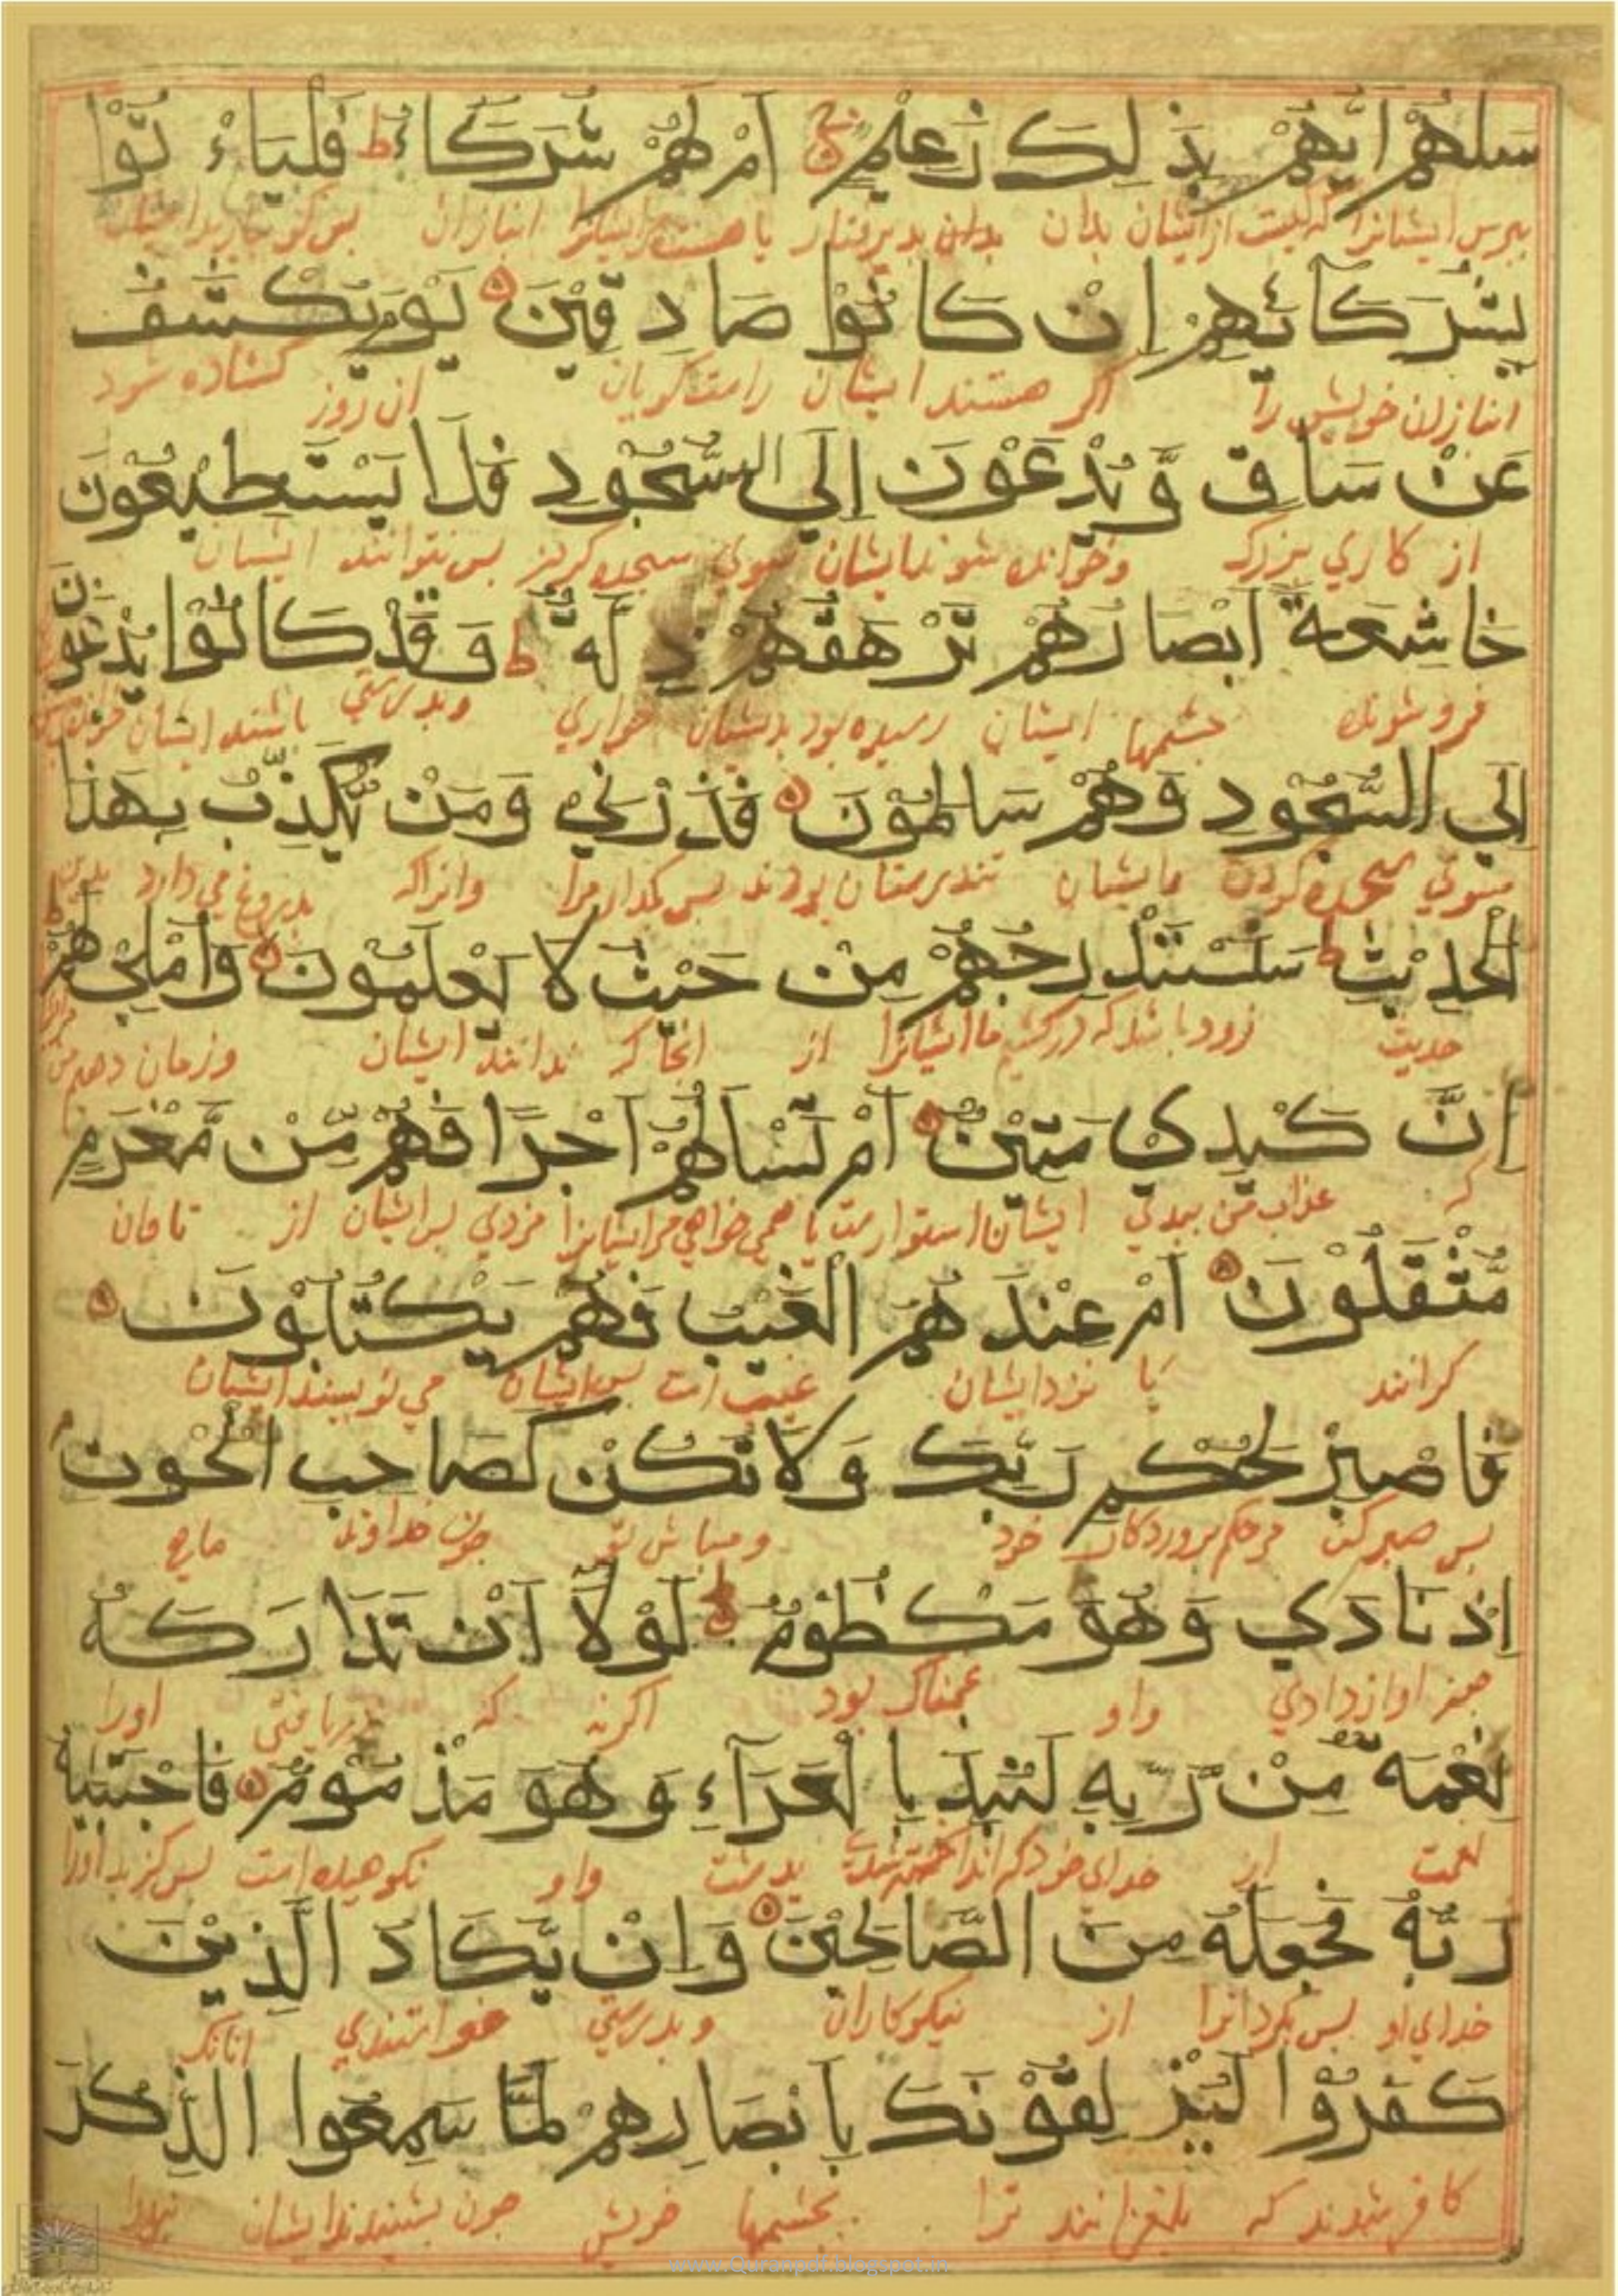 سَلْهُمْ اَيُّهُمْ بِذٰلِكَ زَعِيْمٌ اَمْ لَهُمْ شُرَكَاءُ ط فَلْيَاءْ تُوْا
ببرس ایشانرا که کیست از ایشان بدان بدان بدیرفتار یا هست ایشانرا انبازان بس کو بیارید
بِشُرَكَائِهِمْ اِنْ كَانُوْا صَادِقِيْنَ يَوْمَ يُكْشَفُ
انبازان خویش را اکر هستند ایشان راست کویان ان روز کشاده شود
عَنْ سَاقٍ وَّيُدْعَوْنَ اِلَي السُّجُوْدِ فَلَا يَسْتَطِيْعُوْنَ
از کاری بزرک وخوانده شوند ایشان سوی سجده کردن بس نتوانند ایشان
خَاشِعَةً اَبْصَارُهُمْ تَرْهَقُهُمْ ذِلَّةٌ ط وَقَدْ كَانُوْا يُدْعَوْنَ
فروشونده جشمها ایشان رسیده بود بدیشان خواری وبدرستی باشند ایشان
اِلَي السُّجُوْدِ وَهُمْ سَالِمُوْنَ فَذَرْنِيْ وَمَنْ يُّكَذِّبُ بِهٰذَا
سوی سجده کردن وایشان تندرستان بودند بس بکذار مرا وانرا که بدروغ می دارد بدین
الْحَدِيْثِ ط سَنَسْتَدْرِجُهُمْ مِنْ حَيْثُ لَا يَعْلَمُوْنَ وَاُمْلِيْ لَهُمْ ط
حدیث زود باشد که درکشیم ما ایشانرا از انجا که ندانند ایشان وزمان دهم من
اِنَّ كَيْدِيْ مَتِيْنٌ اَمْ تَسْاَلُهُمْ اَجْرًا فَهُمْ مِّنْ مَّغْرَمٍ
که عذاب من ببدی ایشان استوارست یا همی خواهی مر ایشانرا مزدی بس ایشان از تاوان
مُّثْقَلُوْنَ اَمْ عِنْدَهُمُ الْغَيْبُ فَهُمْ يَكْتُبُوْنَ
کرانند یا نزد ایشان غیب است بس ایشان می نویسند ایشان
فَاصْبِرْ لِحُكْمِ رَبِّكَ وَلَا تَكُنْ كَصَاحِبِ الْحُوْتِ
بس صبر کن مر حکم بروردکار خود ومباش تو جون خداوند ماهی
اِذْ نَادٰي وَهُوَ مَكْظُوْمٌ لَوْلَآ اَنْ تَدَارَكَهٗ
اواز دادی واو غمناک بود اکرنه که دریافتی اورا
نِعْمَةٌ مِّنْ رَّبِّهٖ لَنُبِذَ بِالْعَرَآءِ وَهُوَ مَذْمُوْمٌ فَاجْتَبٰهُ
نعمت از خدای خود انداخته شدی بدشت واو نکوهیده است بس کزید اورا
رَبُّهٗ فَجَعَلَهٗ مِنَ الصَّالِحِيْنَ وَاِنْ يَّكَادُ الَّذِيْنَ
خدای او بس کردانرا از نیکوکاران وبدرستی خواستندی انانکه
كَفَرُوْا لَيُزْلِقُوْنَكَ بِاَبْصَارِهِمْ لَمَّا سَمِعُوا الذِّكْرَ
کافر شدند که بلغزانند ترا بجشمها خویش جون بشنیدند ایشان
www.Quranpdf.blogspot.in